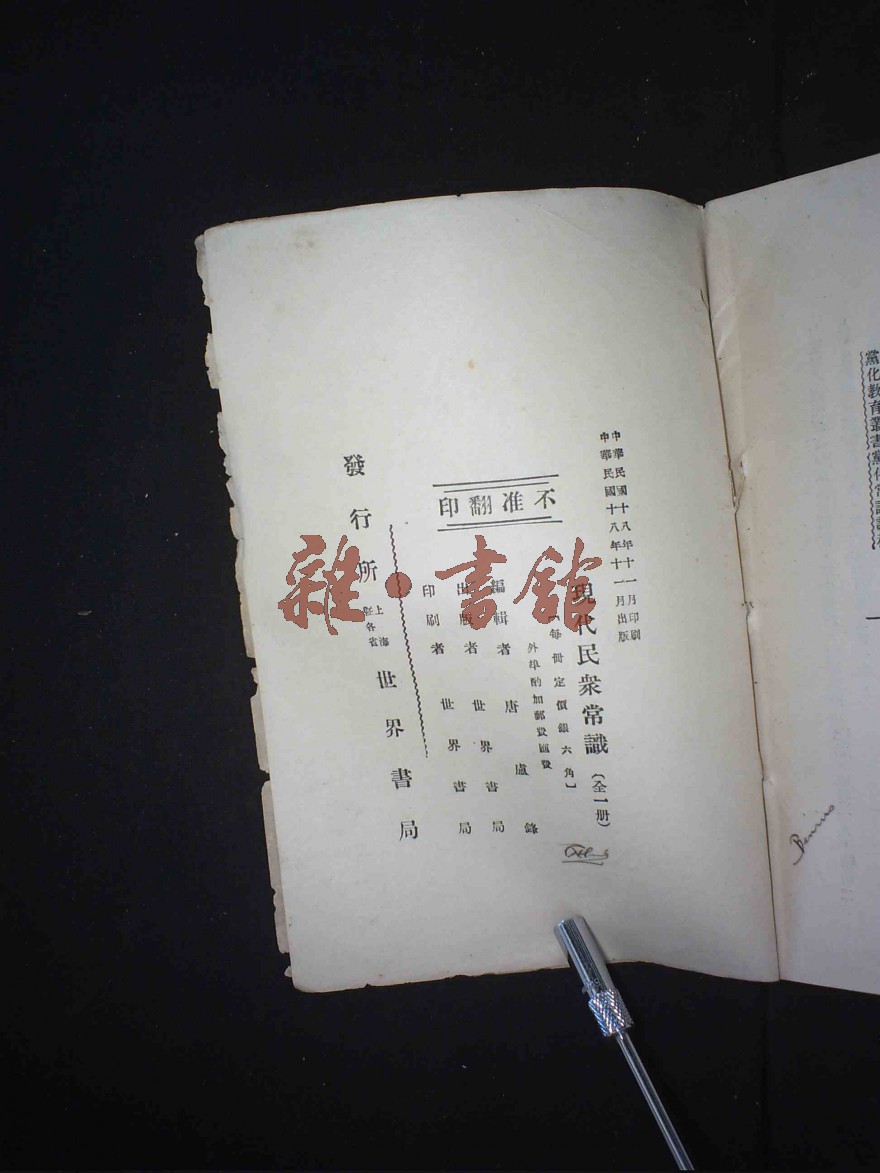 中華民國十八年十一月印刷
中華民國十八年十一月出版
現代民衆常識（全一册）
【每册定價銀六角】
外埠酌加郵費匯費
不准翻印
編輯者 唐盧鋒
出版者 世界書局
印刷者 世界書局
發行所 上海曁各省 世界書局
雜·書館
黨化教育叢書